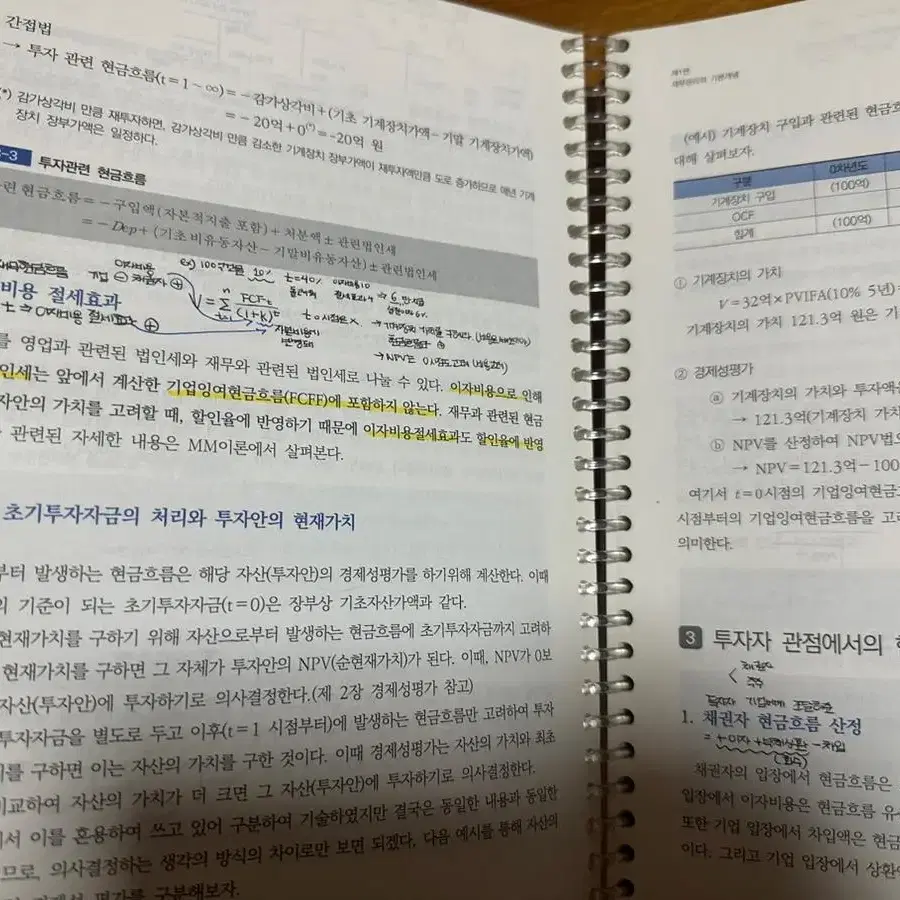 간접법
→ 투자 관련 현금흐름(t=1~∞)=-감가상각비+(기초 기계장치가액-기말 기계장치가액)
=-20억+0(*)=-20억 원
(*) 감가상각비 만큼 재투자하면, 감가상각비 만큼 감소한 기계장치 장부가액이 재투자액만큼 도로 증가하므로 매년 기계
장치 장부가액은 일정하다.
-3 투자관련 현금흐름
현금흐름=-구입액(자본적지출 포함)+처분액±관련법인세
=-Dep+(기초비유동자산-기말비유동자산)±관련법인세
이자비용
ex) 100 10% t=40%
기업 ⊖ 채권자 ⊕
비용 절세효과
V=Σ FCFt/(1+k)^t
t=1
n
t → 이자비용 절세효과 ⊕
자본비용에
→ NPV는 0시점도 고려
를 영업과 관련된 법인세와 재무와 관련된 법인세로 나눌 수 있다. 이자비용으로 인해
인세는 앞에서 계산한 기업잉여현금흐름(FCFF)에 포함하지 않는다. 재무와 관련된 현금
자안의 가치를 고려할 때, 할인율에 반영하기 때문에 이자비용절세효과도 할인율에 반영
관련된 자세한 내용은 MM이론에서 살펴본다.
초기투자자금의 처리와 투자안의 현재가치
부터 발생하는 현금흐름은 해당 자산(투자안)의 경제성평가를 하기위해 계산한다. 이때
의 기준이 되는 초기투자자금(t=0)은 장부상 기초자산가액과 같다.
현재가치를 구하기 위해 자산으로부터 발생하는 현금흐름에 초기투자자금까지 고려하
현재가치를 구하면 그 자체가 투자안의 NPV(순현재가치)가 된다. 이때, NPV가 0보
자산(투자안)에 투자하기로 의사결정한다.(제 2장 경제성평가 참고)
투자자금을 별도로 두고 이후(t=1 시점부터)에 발생하는 현금흐름만 고려하여 투자
치를 구하면 이는 자산의 가치를 구한 것이다. 이때 경제성평가는 자산의 가치와 최초
비교하여 자산의 가치가 더 크면 그 자산(투자안)에 투자하기로 의사결정한다.
서 이를 혼용하여 쓰고 있어 구분하여 기술하였지만 결국은 동일한 내용과 동일한
므로, 의사결정하는 생각의 방식의 차이로만 보면 되겠다. 다음 예시를 통해 자산의
평가를 구분해보자.
제1편
재무관리의 기본개념
(예시) 기계장치 구입과 관련된 현금흐
대해 살펴보자.
구분 0차년도
기계장치 구입 (100억)
OCF
합계 (100억)
① 기계장치의 가치
V=32억×PVIFA(10% 5년)=
기계장치의 가치 121.3억 원은 기
② 경제성평가
ⓐ 기계장치의 가치와 투자액을
→ 121.3억(기계장치 가치
ⓑ NPV를 산정하여 NPV법으
→ NPV=121.3억-100
여기서 t=0시점의 기업잉여현금흐
시점부터의 기업잉여현금흐름을 고려
의미한다.
3 투자자 관점에서의
채권자
주주
투자자 기업에게
1. 채권자 현금흐름 산정
=+이자+부채상환-차입
채권자의 입장에서 현금흐름은
입장에서 이자비용은 현금흐름 유
또한 기업 입장에서 차입액은 현금
이다. 그리고 기업 입장에서 상환